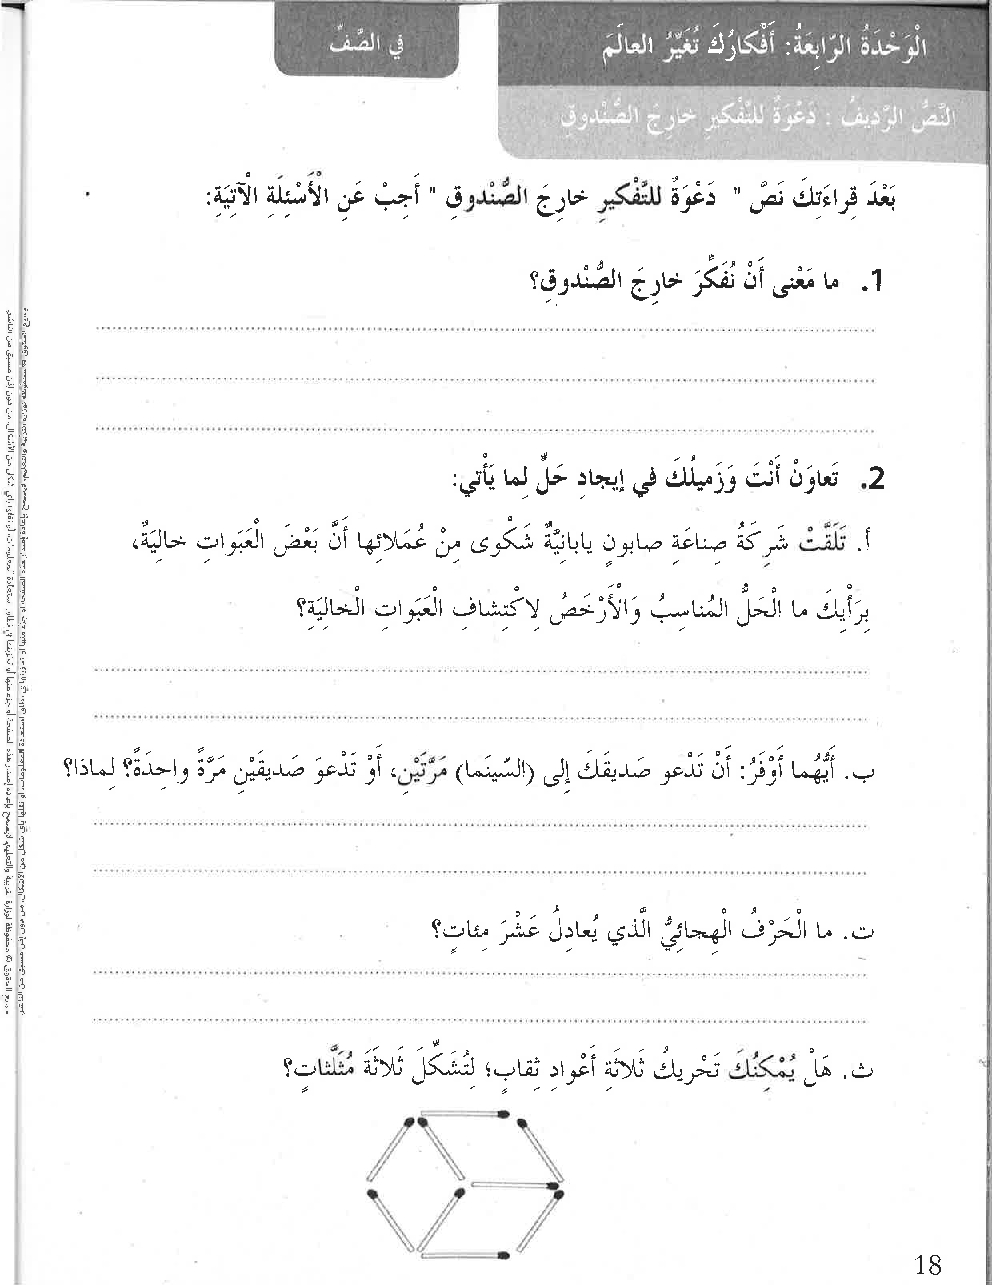 الْوَحْدَةُ الرّابِعَةُ: أَفْكارُكَ تُغَيِّرُ العالَمَ
في الصَّفِّ
النَّصُّ الرَّديفُ : دَعْوَةٌ للتَّفْكيرِ خارِجَ الصُّنْدوقِ
بَعْدَ قِراءَتِكَ نَصَّ " دَعْوَةٌ للتَّفْكيرِ خارِجَ الصُّنْدوقِ " أَجِبْ عَنِ الْأَسْئِلَةِ الْآتِيَةِ:
1. ما مَعْنى أَنْ نُفَكِّرَ خارِجَ الصُّنْدوقِ؟
2. تَعاوَنْ أَنْتَ وَزَميلُكَ في إيجادِ حَلٍّ لِما يَأْتي:
أ. تَلَقَّتْ شَرِكَةُ صِناعَةِ صابونٍ يابانِيَّةٌ شَكْوى مِنْ عُمَلائِها أَنَّ بَعْضَ الْعَبَواتِ خالِيَةٌ،
بِرَأْيِكَ ما الْحَلُّ المُناسِبُ وَالْأَرْخَصُ لِاكْتِشافِ الْعَبَواتِ الْخالِيَةِ؟
ب. أَيُّهُما أَوْفَرُ: أَنْ تَدْعو صَديقَكَ إِلى (السّينَما) مَرَّتَيْنِ، أَوْ تَدْعوَ صَديقَيْنِ مَرَّةً واحِدَةً؟ لِماذا؟
ت. ما الْحَرْفُ الْهِجائِيُّ الَّذي يُعادِلُ عَشْرَ مِئاتٍ؟
ث. هَلْ يُمْكِنُكَ تَحْريكُ ثَلاثَةِ أَعْوادِ ثِقابٍ؛ لِتُشَكِّلَ ثَلاثَةَ مُثَلَّثاتٍ؟
18